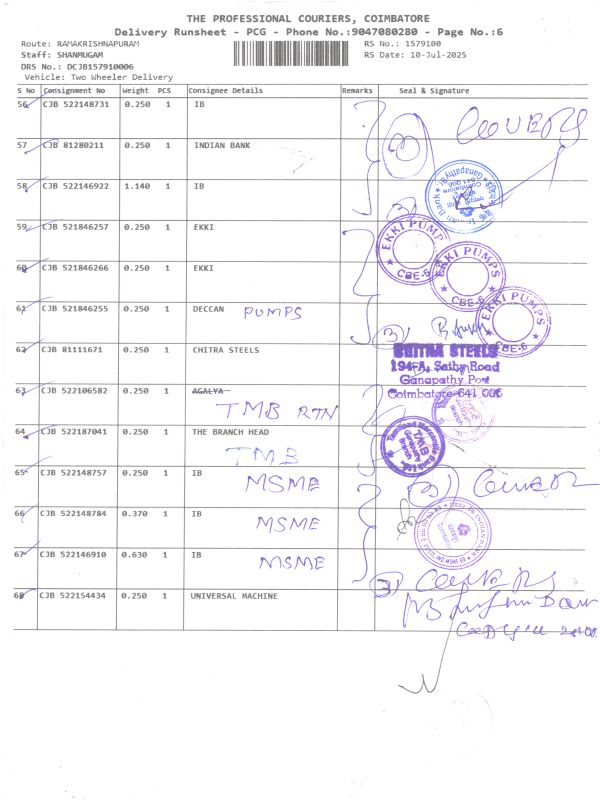 THE PROFESSIONAL COURIERS, COIMBATORE
Delivery Runsheet - PCG - Phone No.:9047080280 - Page No.:6
Route: RAMAKRISHNAPURAM
RS No.: 1579100
Staff: SHANMUGAM
RS Date: 10-Jul-2025
DRS No.: DCJB157910006
Vehicle: Two Wheeler Delivery
S No Consignment No Weight PCS Consignee Details Remarks Seal & Signature
56 CJB 522148731 0.250 1 IB
57 CJB 81280211 0.250 1 INDIAN BANK
58 CJB 522146922 1.140 1 IB
59 CJB 521846257 0.250 1 EKKI
60 CJB 521846266 0.250 1 EKKI
61 CJB 521846255 0.250 1 DECCAN PUMPS
62 CJB 81111671 0.250 1 CHITRA STEELS
63 CJB 522106582 0.250 1 AGALYA
TMB RTN
64 CJB 522187041 0.250 1 THE BRANCH HEAD
TMB
65 CJB 522148757 0.250 1 IB
MSME
66 CJB 522148784 0.370 1 IB
MSME
67 CJB 522146910 0.630 1 IB
MSME
68 CJB 522154434 0.250 1 UNIVERSAL MACHINE
EKKI PUMPS
CBE-6
EKKI PUMPS
CBE-6
EKKI PUMPS
CBE-6
CHITRA STEELS
194-A, Sathy Road
Ganapathy Post
Coimbatore-641 006